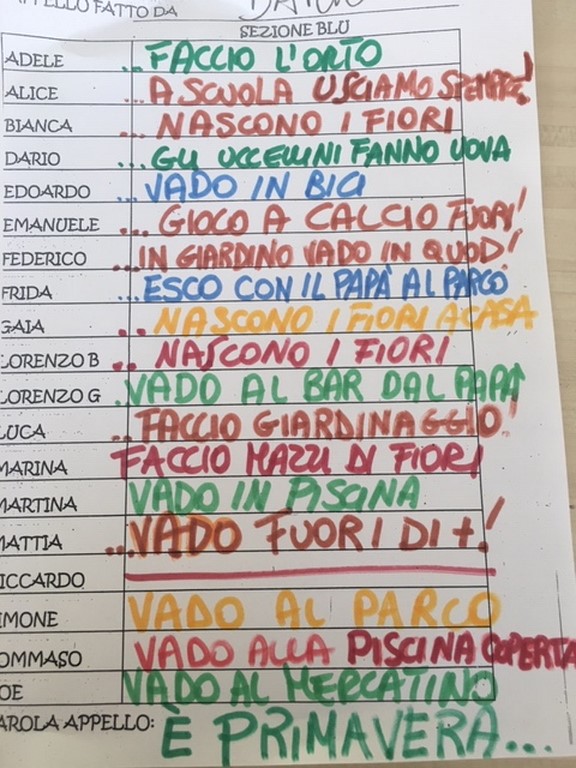 APPELLO FATTO DA DARIO
SEZIONE BLU
ADELE ...FACCIO L'ORTO
ALICE ...A SCUOLA USCIAMO SPEMPRE!
BIANCA ... NASCONO I FIORI
DARIO ...GLI UCCELLINI FANNO UOVA
EDOARDO ...VADO IN BICI
EMANUELE ... GIOCO A CALCIO FUORI!
FEDERICO ...IN GIARDINO VADO IN QUOD!
FRIDA ...ESCO CON IL PAPÀ AL PARCO
GAIA .. NASCONO I FIORI A CASA
LORENZO B .. NASCONO I FIORI
LORENZO G .VADO AL BAR DAL PAPÀ
LUCA ..FACCIO GIARDINAGGIO!
MARINA FACCIO MAZZI DI FIORI
MARTINA VADO IN PISCINA
MATTIA ...VADO FUORI DI +!
ICCARDO
IMONE VADO AL PARCO
OMMASO VADO ALLA PISCINA COPERTA
OE VADO AL MERCATINO
AROLA APPELLO: È PRIMAVERA...